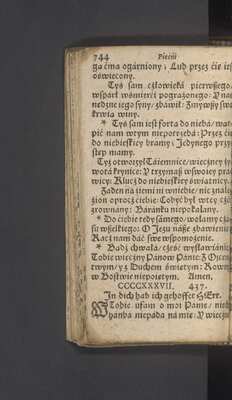 744 Pieśni
ga ćma ogárniony: Lud przez ćie iest
oświecony.
Tyś sam człowieká pierwszego
wsparł w śmierći pogrążonego:
nędzne iego syny: zbáwił: Zmywszy swą
krwią winy.
* Tyś sam iest fortá do niebá: wątpić
nám w tym niepotrzebá: Przez ćię
do niebieskiey bramy: Jedynego przystęp
mamy.
Tyś otworzył Táiemnice: wieczney żywotá
krynice: V trzymasz w swoiey prawicy:
Klucz do niebieskiey świátnicy.
Żaden ná źiemi ni w niebie: nie ználeźion
oprocz ćiebie: Coby był w tey
zrownány: Báránku niepokalány.
* Do ćiebie tedy sámego: wołamy czásu
wszelkiego: O Jezu násze zbáwienie
Racz nam dáć swe wspomożenie.
* Bądź chwałá: cześć wysławiánie
Tobie wieczny Pánow Pánie: Z Oycem
twym: y z Duchem świętym: Rowny
w Bostwie nieпоiętym. Amen.
CCCCXXXVII. 437.
In dich hab ich gehoffet HErr.
W Tobie ufam o moy Pánie: niech
hánbá niepada ná mie: V wieczney